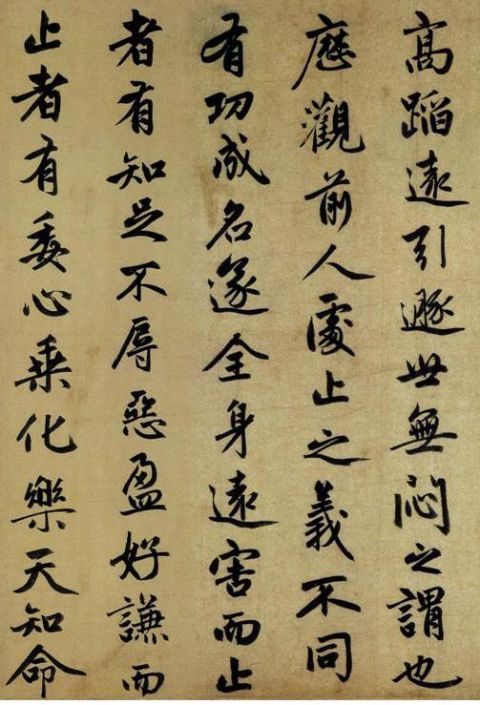 高蹈遠引遯世無悶之謂也
歷觀前人處止之義不同
有功成名遂全身遠害而止
者有知足不辱惡盈好謙而
止者有委心乘化樂天知命